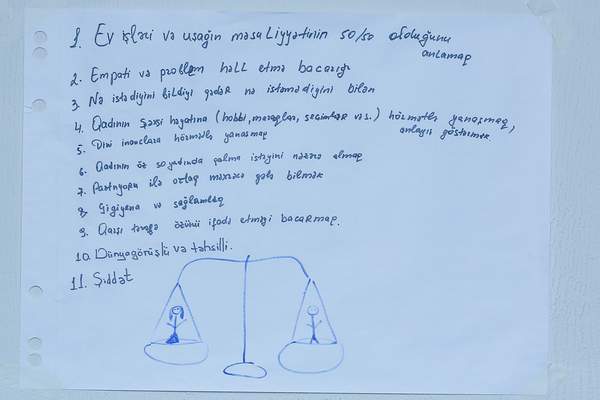 1. Ev işləri və uşağın məsuliyyətinin 50/50 olduğunu
anlamaq
2. Empati və problem həll etmə bacarığı
3. Nə istədiyini bildiyi qədər nə istəmədiyini bilən
4. Qadının şəxsi həyatına (hobbi, maraqlar, seçimlər v.s.) hörmətlə yanaşmaq,
anlayış göstərmək
5. Dini inanclara hörmətlə yanaşmaq
6. Qadının öz soyadında qalma istəyini nəzərə almaq
7. Partnyoru ilə ortaq məxrəcə gələ bilmək
8. Gigiyena və sağlamlıq
9. Qarşı tərəfə özünü ifadə etməyi bacarmaq.
10. Dünyagörüşlü və təhsilli.
11. Şiddət